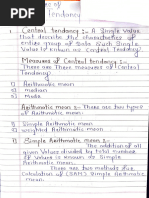 Tendancy
1. Central tendancy :- A Single value
that describe the characteristics of
entire group of data Such Single
Value is known as Central Tendancy.
Measures of Central tendancy :-
There are Three measures of Central
Tendancy
a)
b) median
c) Mode
Arithmatic mean :- There are two types
of Arithmatic mean.
a) Simple Arithmatic mean
b) weighted Arithmatic mean
Simple Arithmatic mean :- The addition of all
given Values divided by Total number
of Values is known as Simple
Arithmatic mean.
There are two methods for
Calculation of SAM) Simple Arithmatic
Mean.